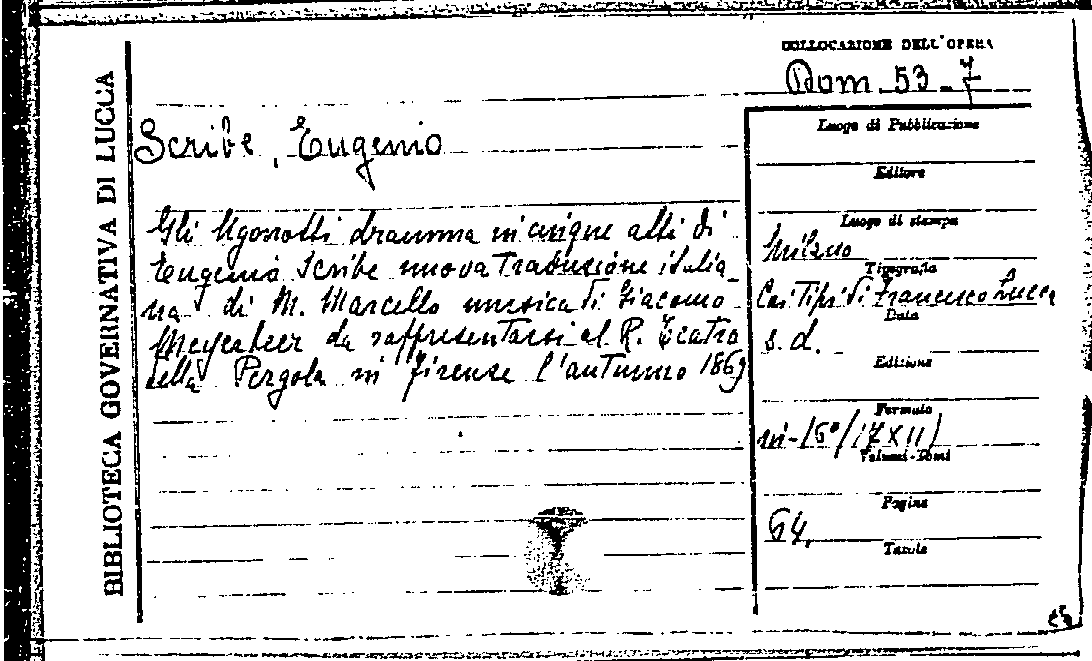 BIBLIOTECA GOVERNATIVA DI LUCCA
COLLOCAZIONE DELL'OPERA
Dom. 53-7
Scribe, Eugenio
Gli Ugonotti dramma in cinque atti di
Eugenio Scribe nuova traduzione italia-
na di M. Marcello musica di Giacomo
Meyerbeer da rappresentarsi al R. Teatro
della Pergola in Firenze l'autunno 1869
Luogo di Pubblicazione
Editore
Luogo di stampa
Milano
Tipografia
Coi Tipi di Francesco Lucca
Data
s.d.
Edizione
Formato
in-16°/17x11)
Volumi-Tomi
Pagine
64.
Tavole